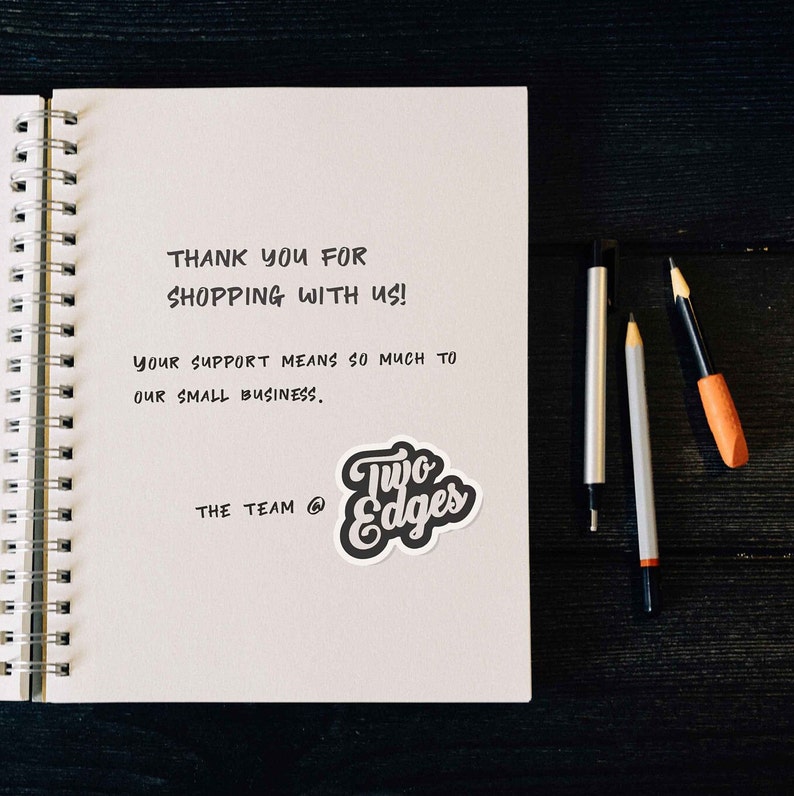 THANK YOU FOR
SHOPPING WITH US!
YOUR SUPPORT MEANS SO MUCH TO
OUR SMALL BUSINESS.
THE TEAM @
Two
Edges